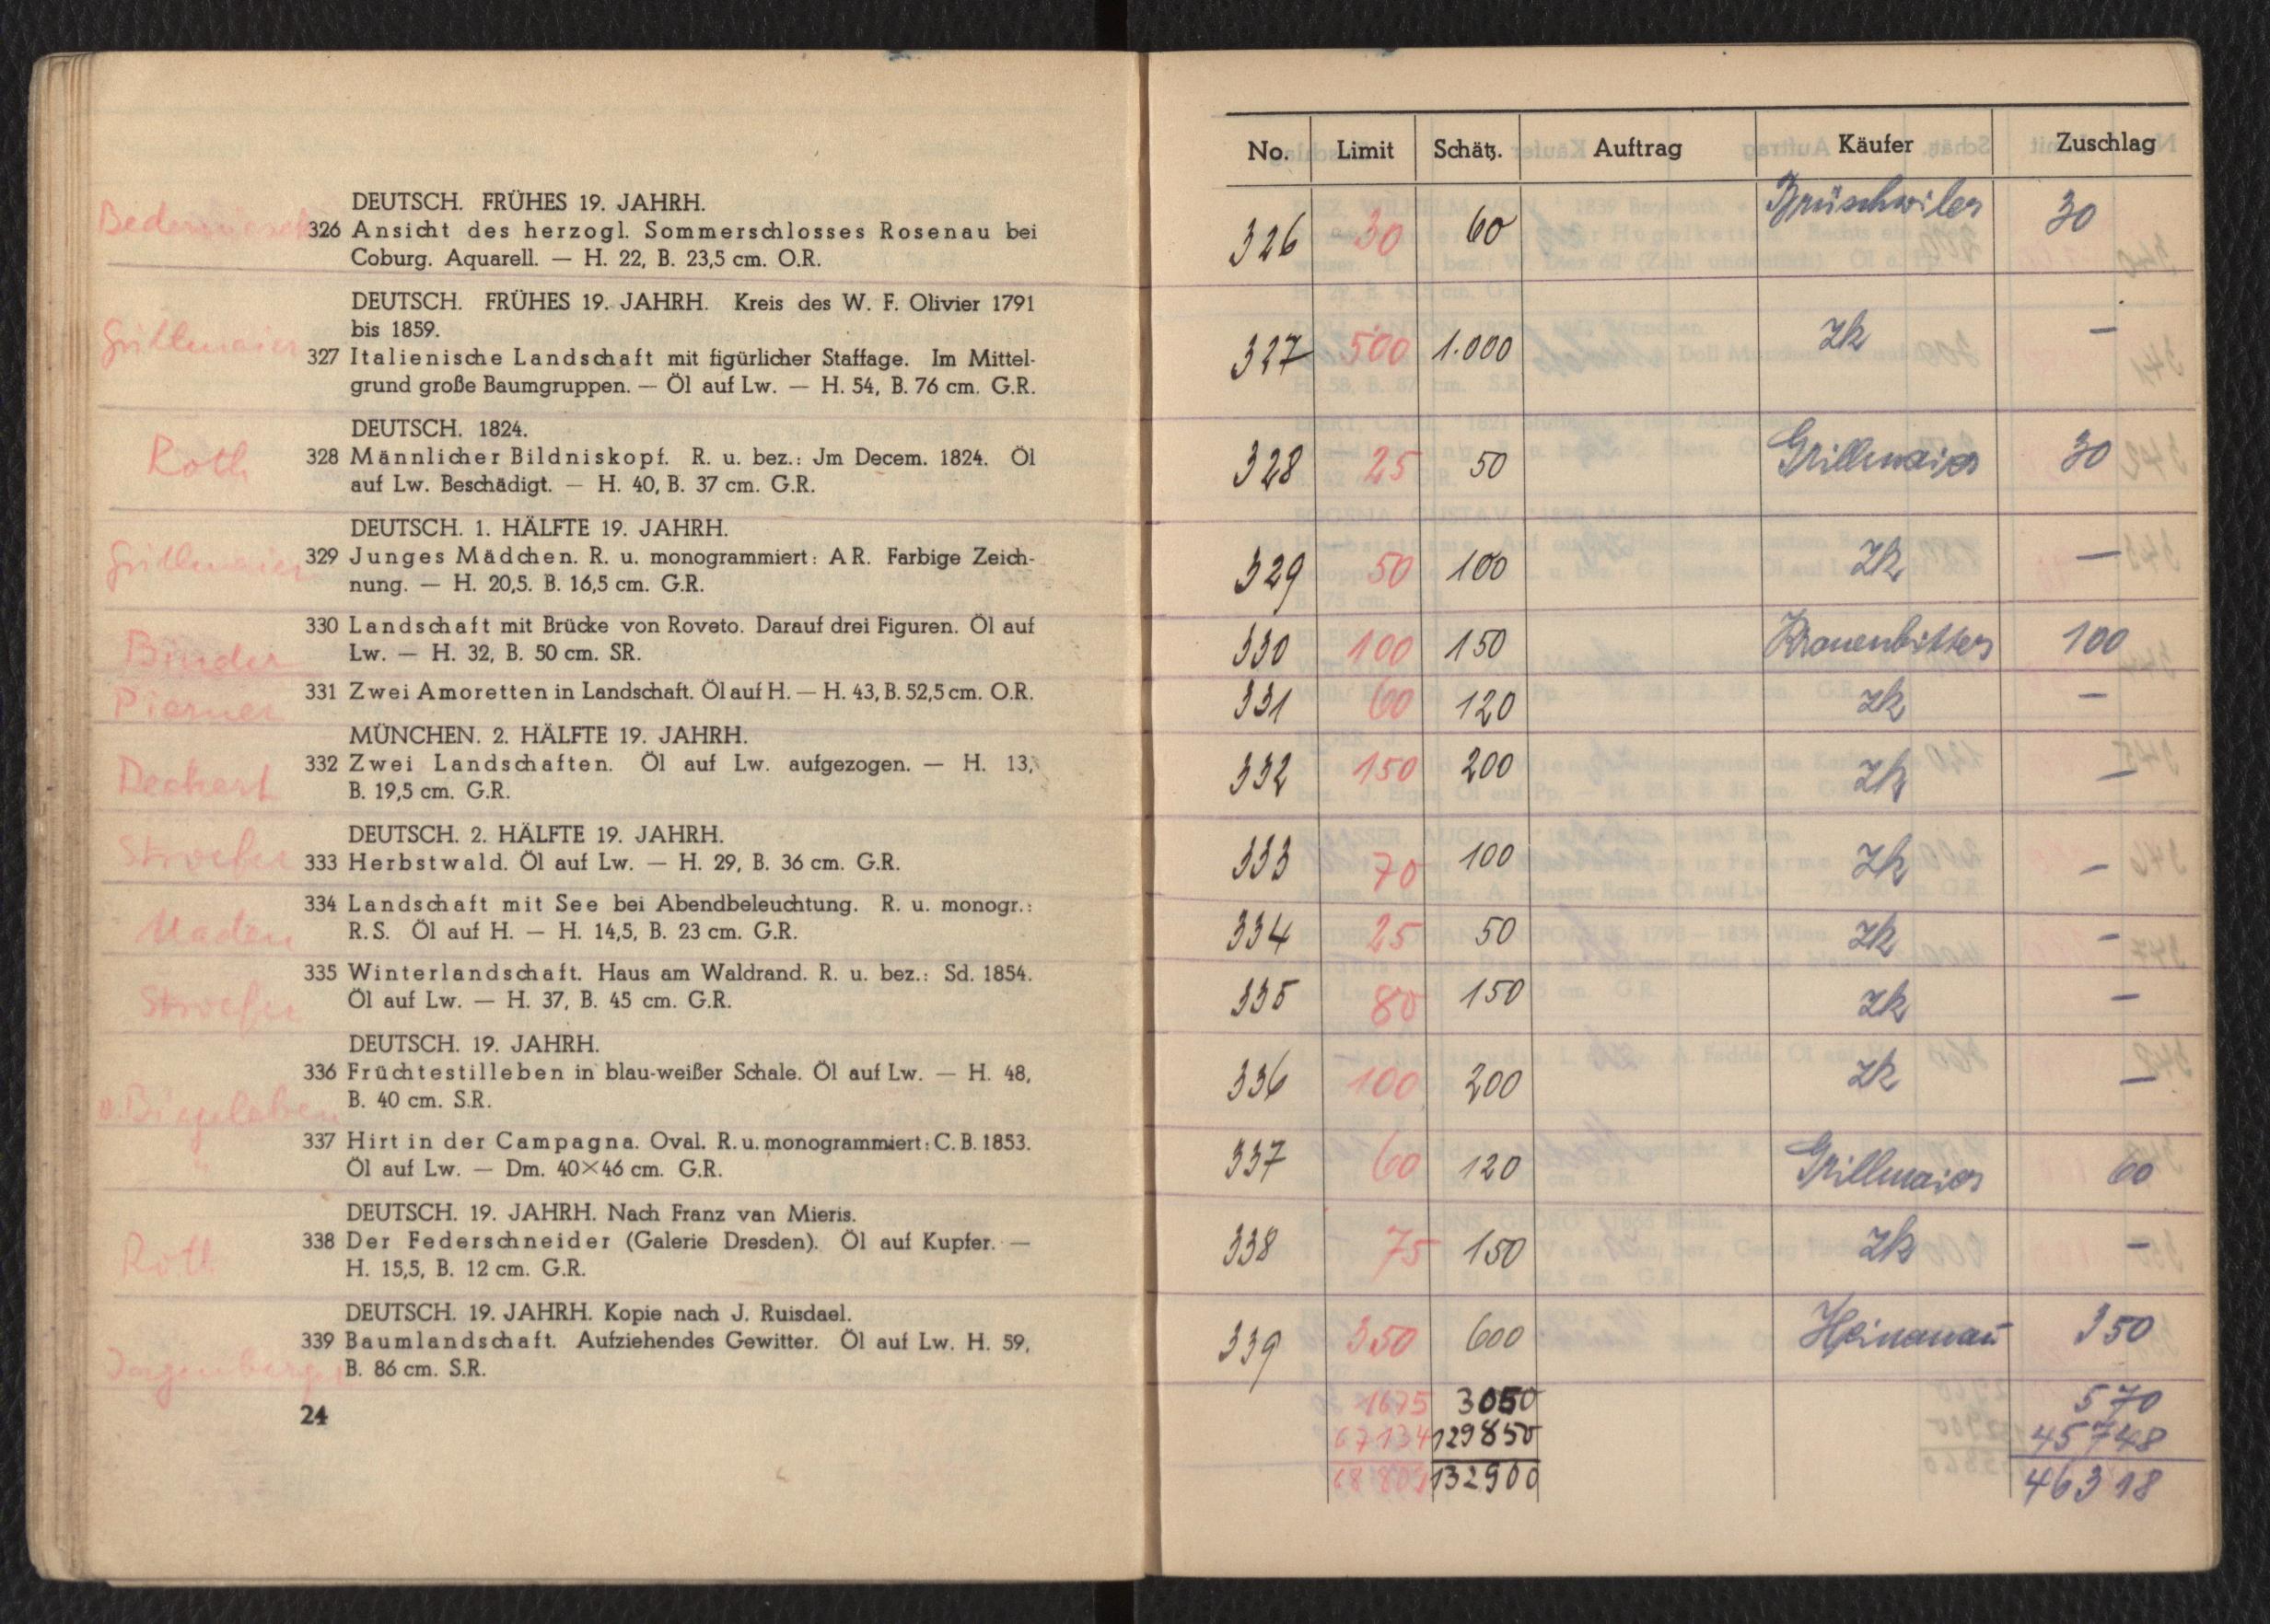 DEUTSCH. FRÜHES 19. JAHRH.
326 Ansicht des herzogl. Sommerschlosses Rosenau bei
Coburg. Aquarell. — H. 22, B. 23,5 cm. O.R.
Grillmaier
DEUTSCH. FRÜHES 19. JAHRH. Kreis des W. F. Olivier 1791
bis 1859.
327 Italienische Landschaft mit figürlicher Staffage. Im Mittel-
grund große Baumgruppen. — Öl auf Lw. — H. 54, B. 76 cm. G.R.
Roth
DEUTSCH. 1824.
328 Männlicher Bildniskopf. R. u. bez.: Jm Decem. 1824. Öl
auf Lw. Beschädigt. — H. 40, B. 37 cm. G.R.
Grillmaier
DEUTSCH. 1. HÄLFTE 19. JAHRH.
329 Junges Mädchen. R. u. monogrammiert: AR. Farbige Zeich-
nung. — H. 20,5. B. 16,5 cm. G.R.
Binder
330 Landschaft mit Brücke von Roveto. Darauf drei Figuren. Öl auf
Lw. — H. 32, B. 50 cm. SR.
331 Zwei Amoretten in Landschaft. Öl auf H. — H. 43, B. 52,5 cm. O.R.
MÜNCHEN. 2. HÄLFTE 19. JAHRH.
Deckert
332 Zwei Landschaften. Öl auf Lw. aufgezogen. — H. 13,
B. 19,5 cm. G.R.
DEUTSCH. 2. HÄLFTE 19. JAHRH.
Stroefer
333 Herbstwald. Öl auf Lw. — H. 29, B. 36 cm. G.R.
334 Landschaft mit See bei Abendbeleuchtung. R. u. monogr.:
R.S. Öl auf H. — H. 14,5, B. 23 cm. G.R.
Stroefer
335 Winterlandschaft. Haus am Waldrand. R. u. bez.: Sd. 1854.
Öl auf Lw. — H. 37, B. 45 cm. G.R.
DEUTSCH. 19. JAHRH.
336 Früchtestilleben in blau-weißer Schale. Öl auf Lw. — H. 48,
B. 40 cm. S.R.
v. Biegeleben
337 Hirt in der Campagna. Oval. R. u. monogrammiert: C. B. 1853.
Öl auf Lw. — Dm. 40×46 cm. G.R.
"
DEUTSCH. 19. JAHRH. Nach Franz van Mieris.
Roth
338 Der Federschneider (Galerie Dresden). Öl auf Kupfer. —
H. 15,5, B. 12 cm. G.R.
DEUTSCH. 19. JAHRH. Kopie nach J. Ruisdael.
339 Baumlandschaft. Aufziehendes Gewitter. Öl auf Lw. H. 59,
B. 86 cm. S.R.
24
No. Limit Schätz. Auftrag Käufer Zuschlag
326 30 60 Brüschwiler 30
327 500 1.000 zk —
328 25 50 Grillmaier 30
329 50 100 zk —
330 100 150 Kronenbitter 100
331 60 120 zk —
332 150 200 zk —
333 70 100 zk —
334 25 50 zk —
335 80 150 zk —
336 100 200 zk —
337 60 120 Grillmaier 60
338 75 150 zk —
339 350 600 350
1675 3050 570
67134 129850 45748
68809 132900 46318